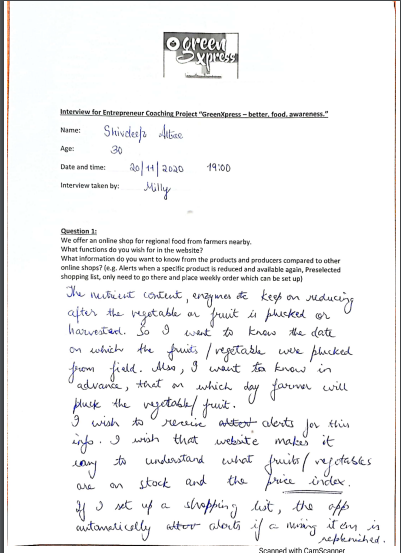 green
Xpress
Interview for Entrepreneur Coaching Project "GreenXpress – better, food, awareness."
Name: Shivdeep
Age: 30
Date and time: 20/11/2020 19:00
Interview taken by: Milly
Question 1:
We offer an online shop for regional food from farmers nearby.
What functions do you wish for in the website?
What information do you want to know from the products and producers compared to other
online shops? (e.g. Alerts when a specific product is reduced and available again, Preselected
shopping list, only need to go there and place weekly order which can be set up)
The nutrient content, enzymes etc keep on reducing
after the vegetable or fruit is plucked or
harvested. So I want to know the date
on which the fruits/vegetable were plucked
from field. Also, I want to know in
advance, that on which day farmer will
pluck the vegetable/fruit.
I wish to receive alerts for this
info. I wish that website makes it
easy to understand what fruits/vegetables
are on stock and the price index.
If I set up a shopping list, the app
automatically alerts if a missing item is
replenished.
Scanned with CamScanner